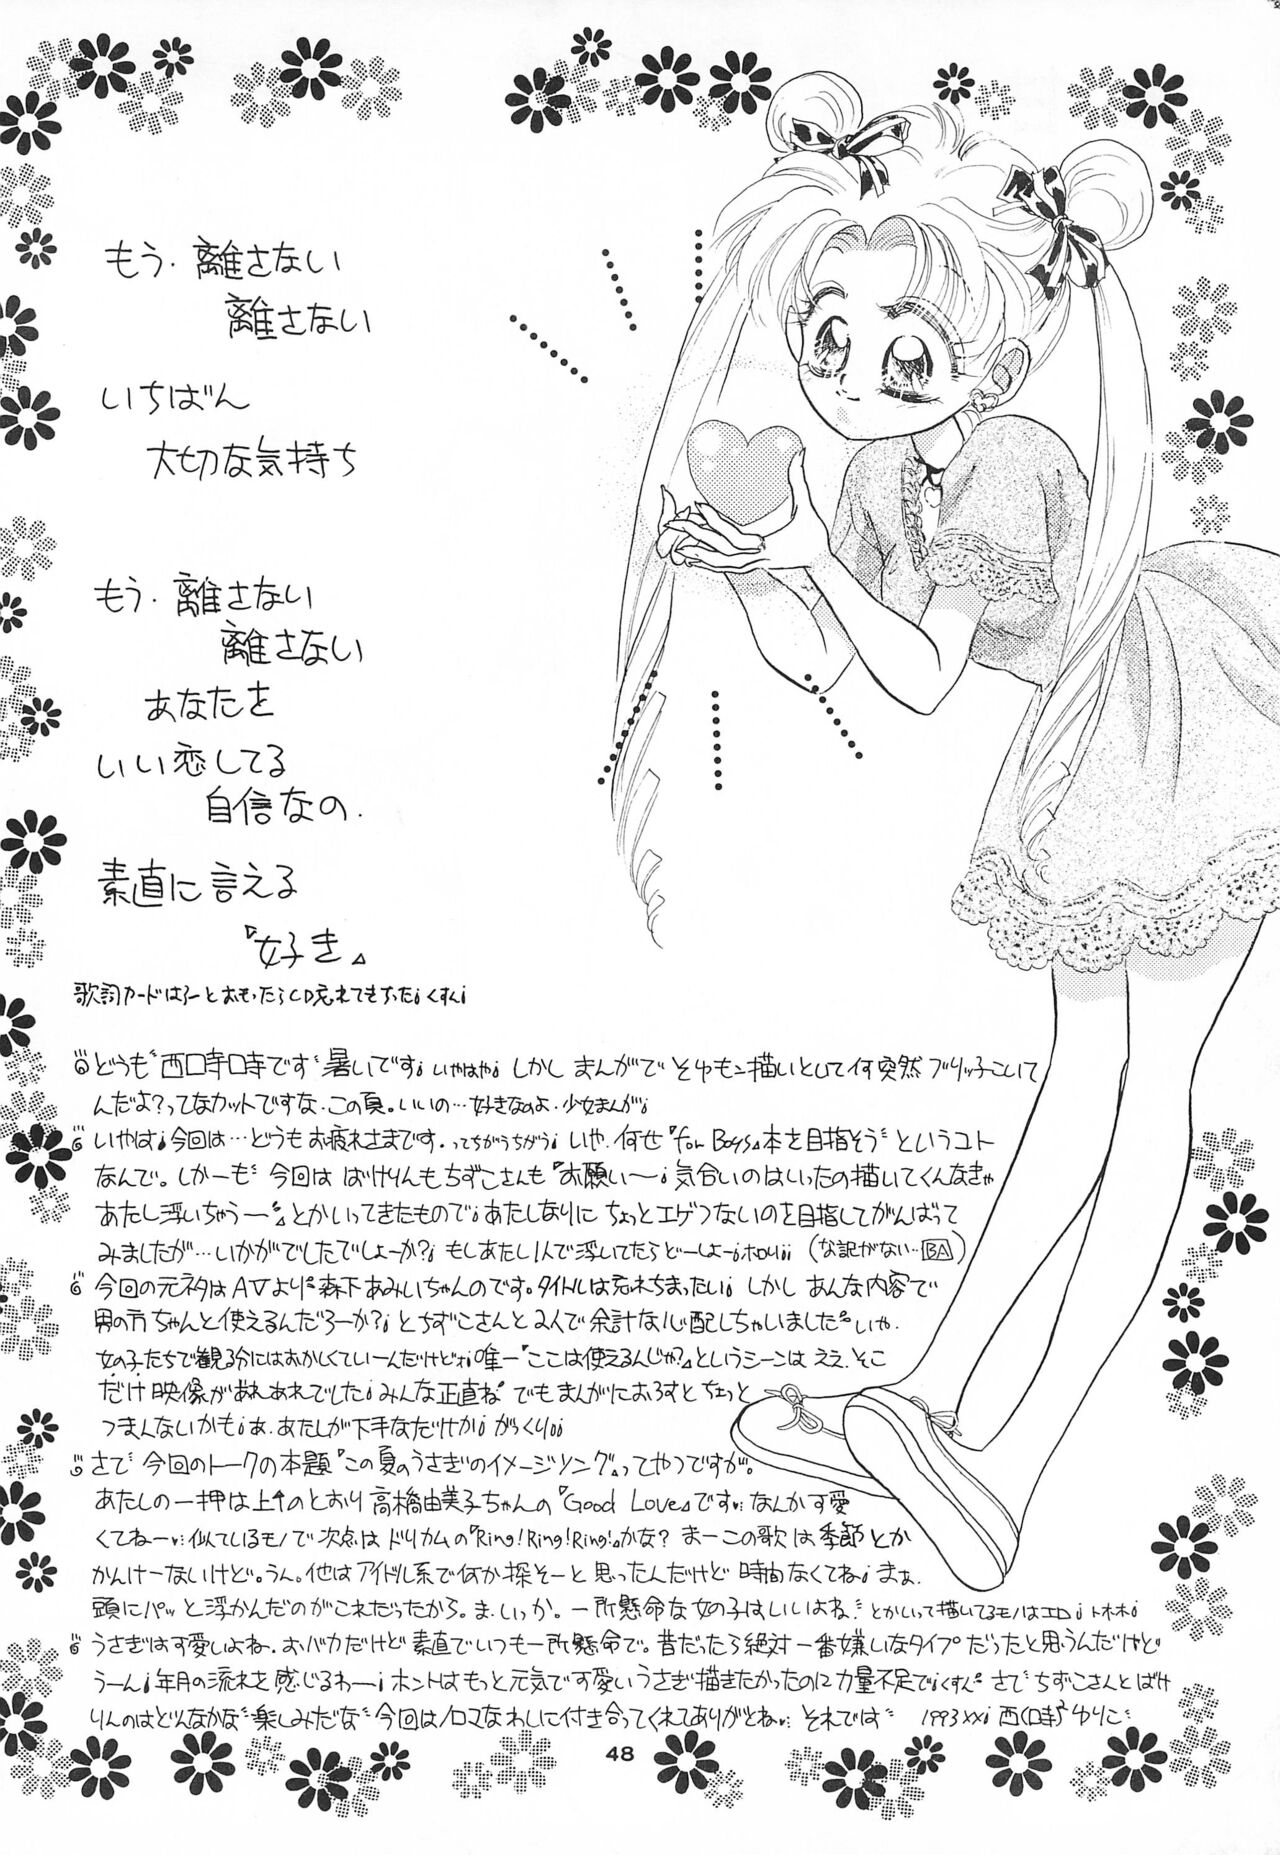 もう．離さない
離さない
いちばん
大切な気持ち
もう．離さない
離さない
あなたを
いい恋してる
自信なの．
素直に言える
『好き』
歌詞カードはろーとおもったらCD忘れてきちった¡くすん¡
どうも〝西口寺口寺です〟暑いです¡いやはや¡しかしまんがでそゆモン描いといて何突然ブリッ子こいて
んだよ?ってなカットですな．この頁。いいの…好きなのよ．少女まんが¡
いやは¡今回は…どうもお疲れさまです．ってちがうちがう¡いや．何せ『for Boys』本を目指そう〟というコト
なんで。しかーも〝今回はばけりんもちずこさんも『お願い〜¡気合いのはいったの描いてくんなきゃ
あたし浮いちゃうー〟』とかいってきたもので¡あたしなりにちょっとエゲつないのを目指してがんばって
みましたが…いかがでしたでしょーか?¡もしあたし1人で浮いてたらどーしよー¡ホロリ¡¡（な訳がない…BA）
今回の元ネタはAVより〝森下あみいちゃんのです。タイトルは忘れちまったい¡しかしあんな内容で
男の方ちゃんと使えるんだろーか?¡とちずこさんと2人で余計な心配しちゃいました〟いや．
女の子たちで観る分にはおかしくていーんだけどォ¡唯一『ここは使えるんじゃ?』というシーンはええ．そこ
だけ映像があれあれでした¡みんな正直ね〟でもまんがにおろすとちょっと
つまんないかも¡あ．あたしが下手なだけか¡がっくり¡¡
さて〝今回のトークの本題『この夏のうさぎのイメージソング』ってやつですが。
あたしの一押は上のとおり高橋由美子ちゃんの『Good Love』です…なんか可愛
くてねー…似ているモノで次点はドリカムの『Ring!Ring!Ring!』かな?まーこの歌は季節とか
かんけーないけど。うん。他はアイドル系で何か探そーと思ったんだけど時間なくてね¡まぁ．
頭にパッと浮かんだのがこれだったから。ま．いっか。一所懸命な女の子はいいよね〟とかいって描いてるモノはエロ¡トホホ¡
うさぎは可愛いよね．おバカだけど素直でいつも一所懸命で。昔だったら絶対一番嫌いなタイプだったと思うんだけど
うーん¡年月の流れを感じるわー¡ホントはもっと元気で可愛いうさぎ描きたかったのに力量不足で¡くすん〟さて〝ちずこさんとばけ
りんのはどんなかな〝楽しみだな〟今回はノロマなわしに付き合ってくれてありがとね…それでは〝 1993
48